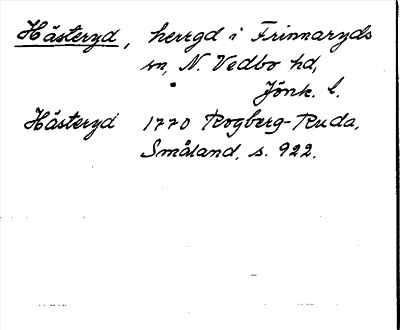 Hästeryd, herrgd i Frinnaryds
sn, N. Vedbo hd,
Jönk. l.
Hästeryd 1770 Rogberg-Ruda,
Småland, s. 922.